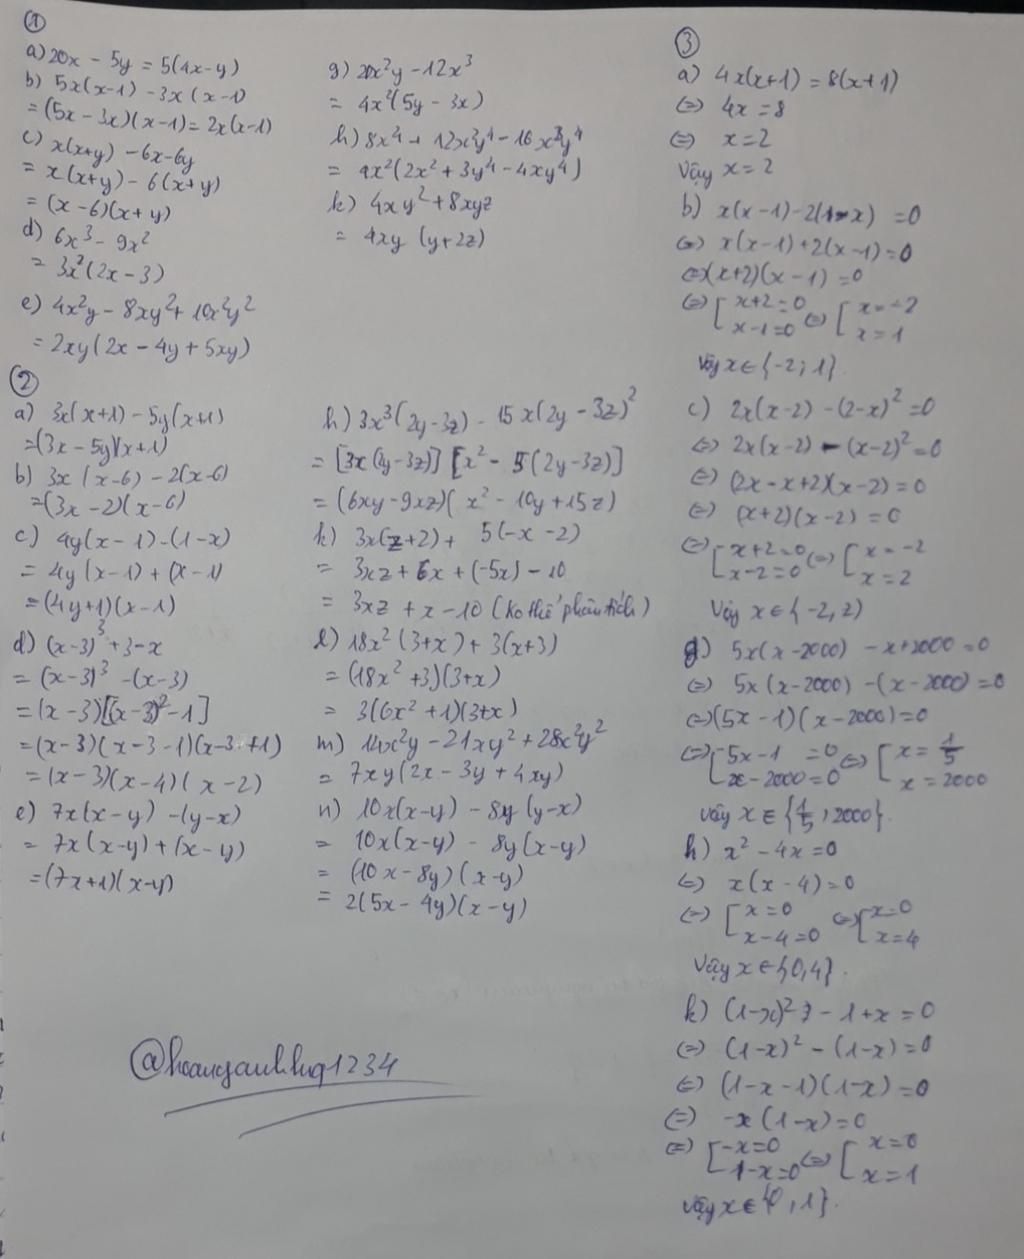 ①
a) 20x - 5y = 5(4x-y)
b) 5x(x-1) - 3x(x-1)
= (5x - 3x)(x-1) = 2x(x-1)
c) x(x+y) - 6x - 6y
= x(x+y) - 6(x+y)
= (x-6)(x+y)
d) 6x³ - 9x²
= 3x²(2x-3)
e) 4x²y - 8xy² + 10x²y²
= 2xy(2x - 4y + 5xy)
g) 20x²y - 12x³
= 4x²(5y - 3x)
h) 8x⁴ + 12x²y⁴ - 16x³y⁴
= 4x²(2x² + 3y⁴ - 4xy⁴)
k) 4xy² + 8xyz
= 4xy (y+2z)
②
a) 3x(x+1) - 5y(x+1)
=(3x - 5y)(x+1)
b) 3x (x-6) - 2(x-6)
=(3x-2)(x-6)
c) 4y(x-1) - (1-x)
= 4y(x-1) + (x-1)
=(4y+1)(x-1)
d) (x-3)³ + 3-x
= (x-3)³ - (x-3)
= (x-3)[(x-3)²-1]
=(x-3)(x-3-1)(x-3+1)
= (x-3)(x-4)(x-2)
e) 7x(x-y) - (y-x)
= 7x(x-y) + (x-y)
=(7x+1)(x-y)
h) 3x³(2y-3z) - 15x(2y-3z)²
= [3x(2y-3z)] [x² - 5(2y-3z)]
= (6xy-9xz)(x² - 10y + 15z)
k) 3x(z+2) + 5(-x-2)
= 3xz + 6x + (-5x) - 10
= 3xz + x - 10 (Ko thể phân tích)
l) 18x²(3+x) + 3(x+3)
= (18x²+3)(3+x)
= 3(6x²+1)(3+x)
m) 14x²y - 21xy² + 28x²y²
= 7xy(2x - 3y + 4xy)
n) 10x(x-y) - 8y(y-x)
= 10x(x-y) - 8y(x-y)
= (10x-8y)(x-y)
= 2(5x-4y)(x-y)
@hoanganhhq1234
③
a) 4x(x+1) = 8(x+1)
(=) 4x = 8
(=) x = 2
Vậy x = 2
b) x(x-1) - 2(1-x) = 0
(=) x(x-1) + 2(x-1) = 0
(=)(x+2)(x-1) = 0
(=) [x+2=0 (=) [x=-2
x-1=0 x=1
Vậy x∈{-2;1}.
c) 2x(x-2) - (2-x)² = 0
(=) 2x(x-2) - (x-2)² = 0
(=) (2x-x+2)(x-2) = 0
(=) (x+2)(x-2) = 0
(=) [x+2=0 (=) [x=-2
x-2=0 x=2
Vậy x∈{-2,2}
g) 5x(x-2000) - x+2000 = 0
(=) 5x(x-2000) - (x-2000) = 0
(=)(5x-1)(x-2000) = 0
(=)[5x-1 = 0 (=) [x = 1/5
x-2000=0 x = 2000
Vậy x∈{1/5, 2000}.
h) x² - 4x = 0
(=) x(x-4) = 0
(=) [x=0 (=)[x=0
x-4=0 x=4
Vậy x∈{0,4}.
k) (1-x)² - 1+x = 0
(=) (1-x)² - (1-x) = 0
(=) (1-x-1)(1-x) = 0
(=) -x(1-x) = 0
(=) [-x=0 (=) [x=0
1-x=0 x=1
Vậy x∈{0,1}.